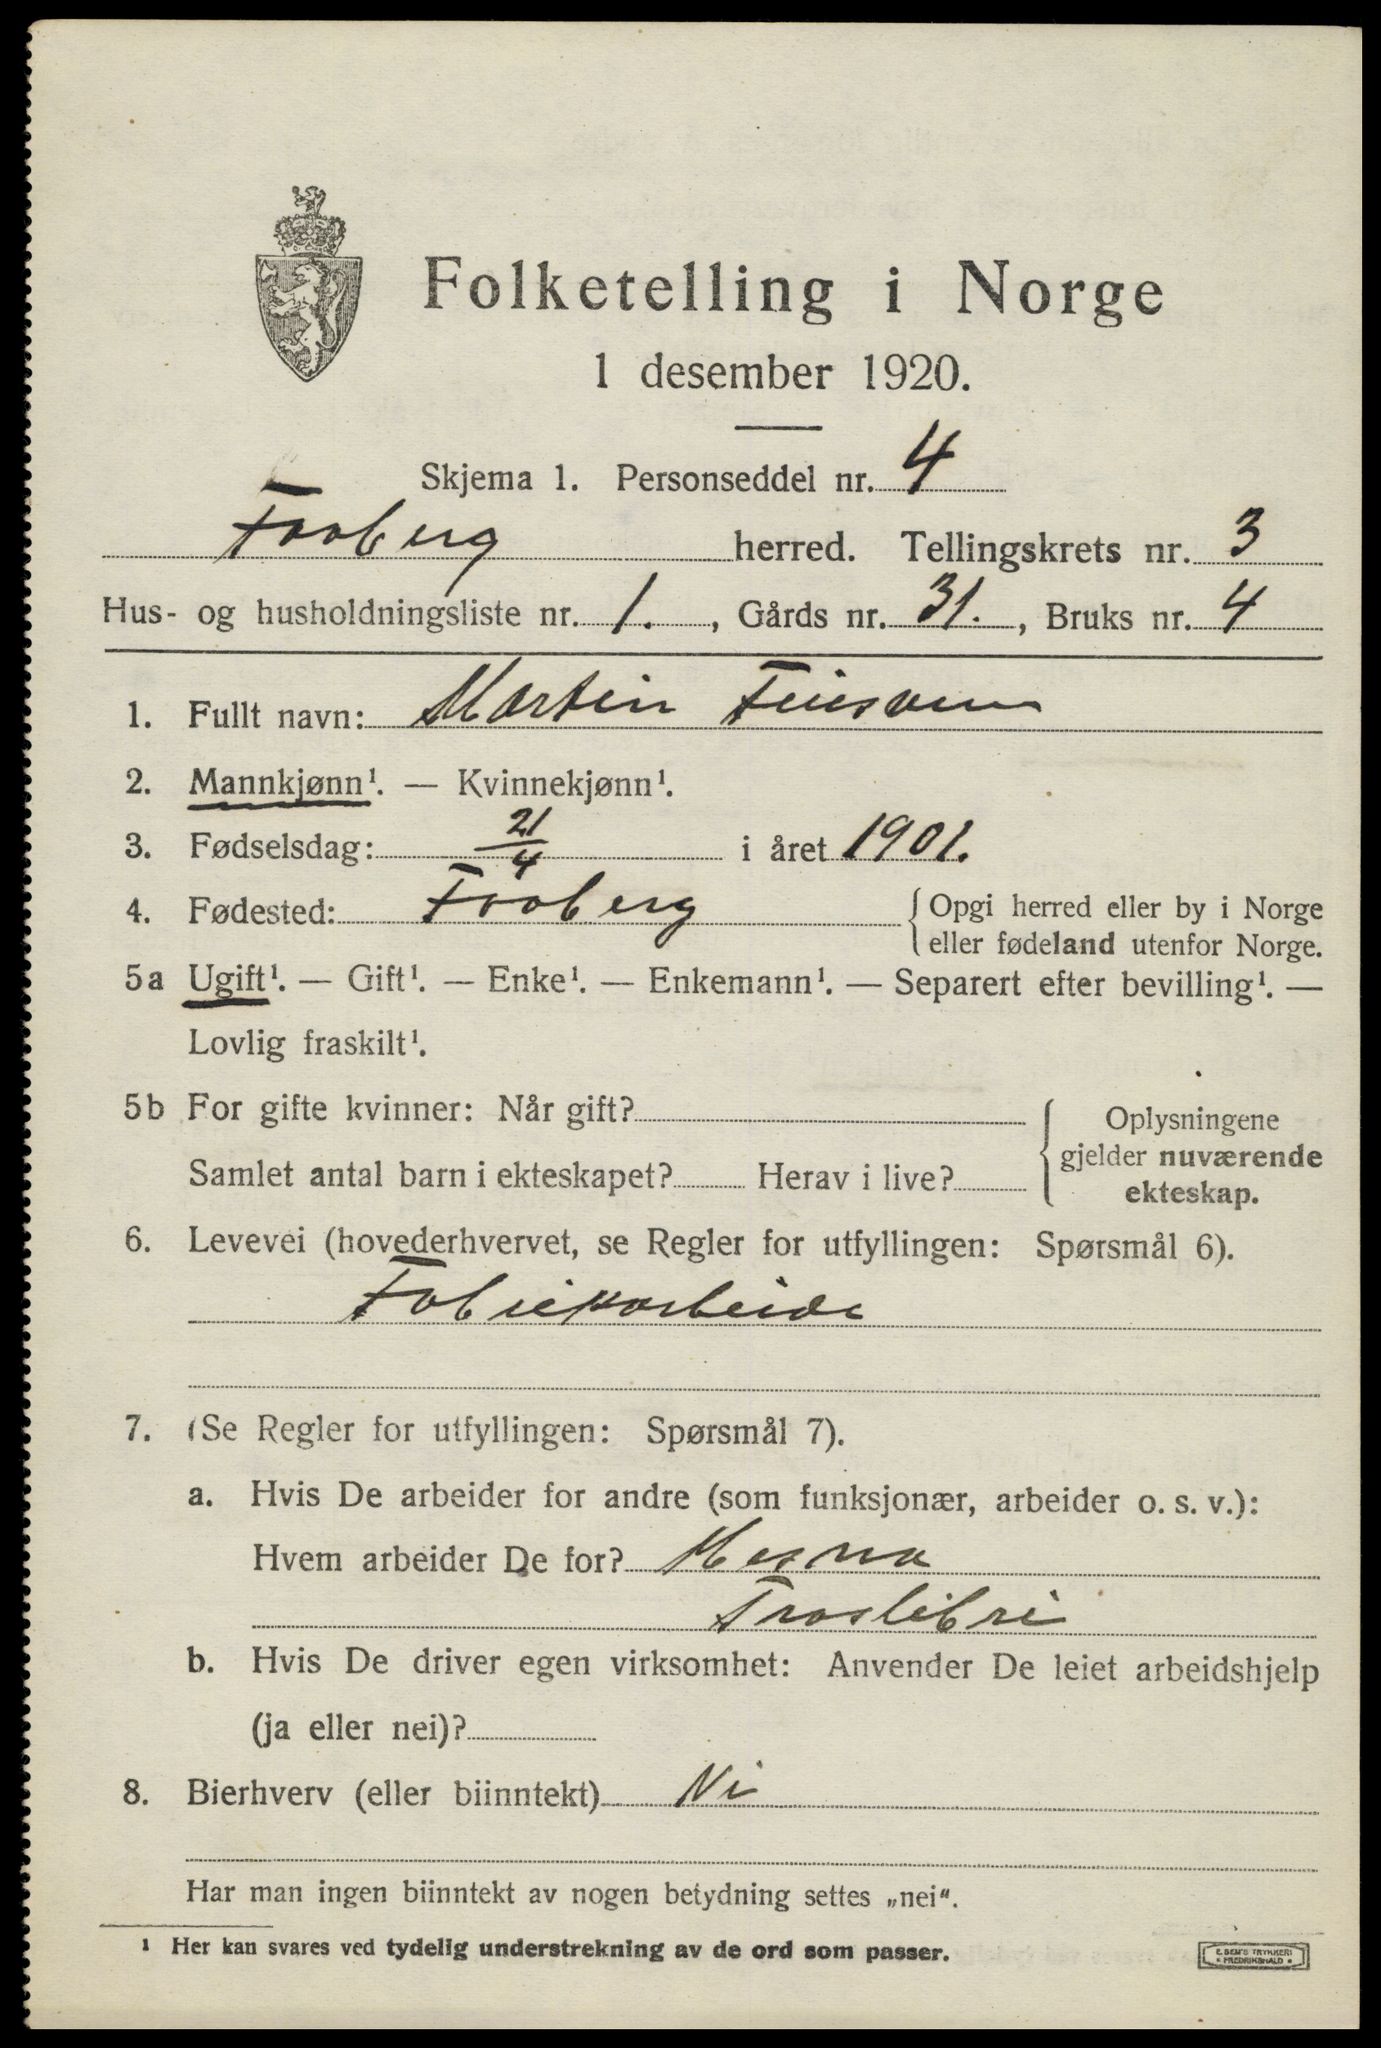 Folketelling i Norge
1 desember 1920.
Skjema 1. Personseddel nr. 4
Faaberg herred. Tellingskrets nr. 3
Hus- og husholdningsliste nr. 1. , Gårds nr. 31. , Bruks nr. 4
1. Fullt navn: Martin
2. Mannkjønn¹. — Kvinnekjønn¹.
3. Fødselsdag: 21/4 i året 1901.
4. Fødested: Faaberg { Opgi herred eller by i Norge
eller fødeland utenfor Norge.
5a Ugift¹. — Gift¹. — Enke¹. — Enkemann¹. — Separert efter bevilling¹. —
Lovlig fraskilt¹.
5b For gifte kvinner: Når gift? { Oplysningene
gjelder nuværende
Samlet antal barn i ekteskapet? Herav i live?
ekteskap.
6. Levevei (hovederhvervet, se Regler for utfyllingen: Spørsmål 6).
Fabrikarbeide
7. (Se Regler for utfyllingen: Spørsmål 7).
a. Hvis De arbeider for andre (som funksjonær, arbeider o. s. v.):
Hvem arbeider De for? Mesna
Træslibri
b. Hvis De driver egen virksomhet: Anvender De leiet arbeidshjelp
(ja eller nei)?
8. Bierhverv (eller biinntekt) Ni
Har man ingen biinntekt av nogen betydning settes „nei“.
¹ Her kan svares ved tydelig understrekning av de ord som passer.
E. SEM'S TRYKKERI
* FREDRIKSHALD *